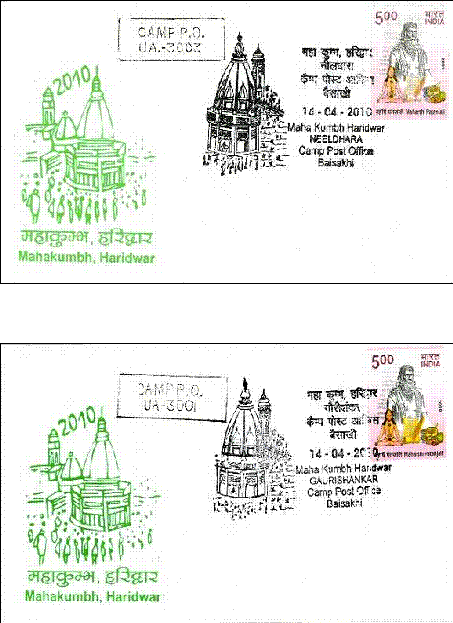 CAMP P.O.
UA-3003
5.00 भारत
INDIA
2010
महा कुम्भ, हरिद्वार
नीलधारा
कैम्प पोस्ट आफिस
बैसाखी
14-04-2010
Maha Kumbh Haridwar
NEELDHARA
Camp Post Office
Baisakhi
महाकुम्भ, हरिद्वार
Mahakumbh, Haridwar
CAMP P.O.
UA-3001
5.00 भारत
INDIA
2010
महा कुम्भ, हरिद्वार
गौरीशंकर
कैम्प पोस्ट आफिस
बैसाखी
14-04-2010
Maha Kumbh Haridwar
GAURISHANKAR
Camp Post Office
Baisakhi
महाकुम्भ, हरिद्वार
Mahakumbh, Haridwar